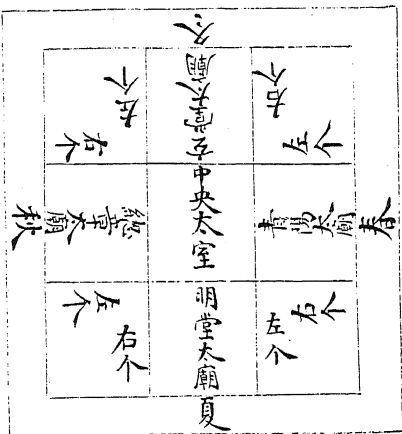 冬
玄堂太廟
左个
右个
右个
左个
秋
總章大廟
中央太室
青陽太廟
春
左个
右个
明堂太廟
夏
左个
右个